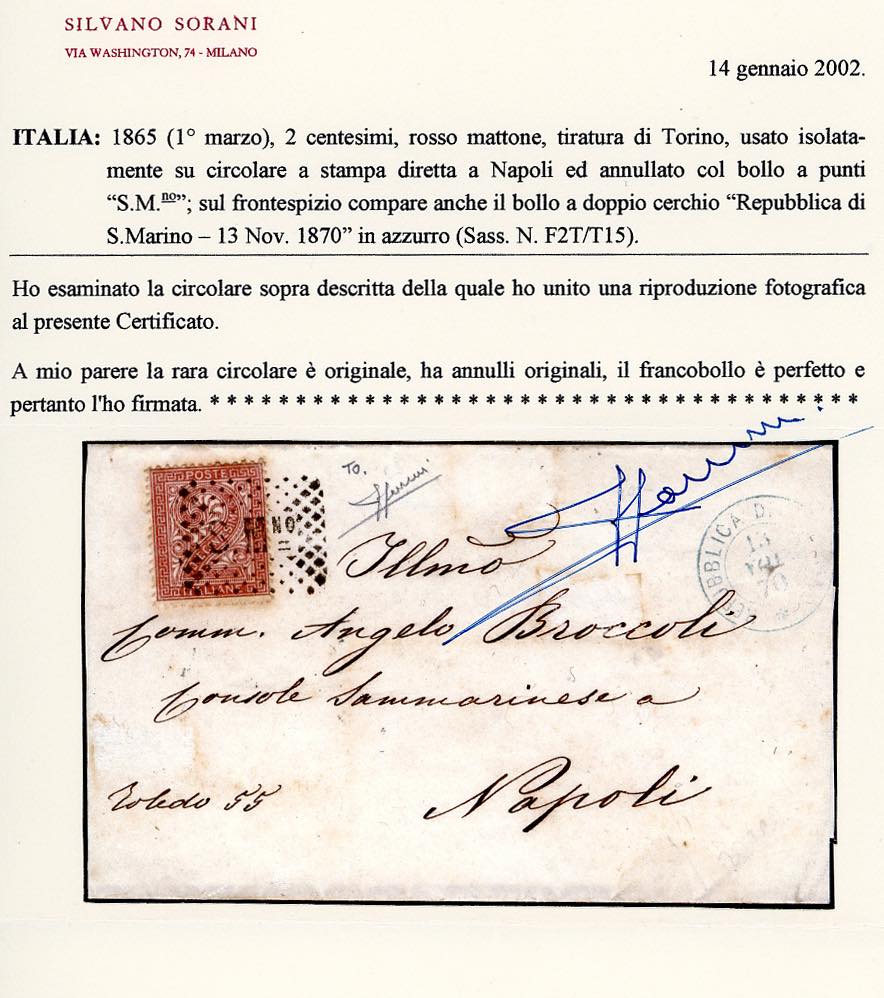 SILVANO SORANI
VIA WASHINGTON, 74 - MILANO
14 gennaio 2002.
ITALIA: 1865 (1° marzo), 2 centesimi, rosso mattone, tiratura di Torino, usato isolata-
mente su circolare a stampa diretta a Napoli ed annullato col bollo a punti
“S.M.no”; sul frontespizio compare anche il bollo a doppio cerchio “Repubblica di
S.Marino – 13 Nov. 1870” in azzurro (Sass. N. F2T/T15).
Ho esaminato la circolare sopra descritta della quale ho unito una riproduzione fotografica
al presente Certificato.
A mio parere la rara circolare è originale, ha annulli originali, il francobollo è perfetto e
pertanto l'ho firmata. * * * * * * * * * * * * * * * * * * * * * * * * * * * * * * * * * * * * * *
POSTE
TO.
Illmo
Comm. Angelo Broccoli
Console Sammarinese a
Napoli
Toledo 55
13
NOV
70